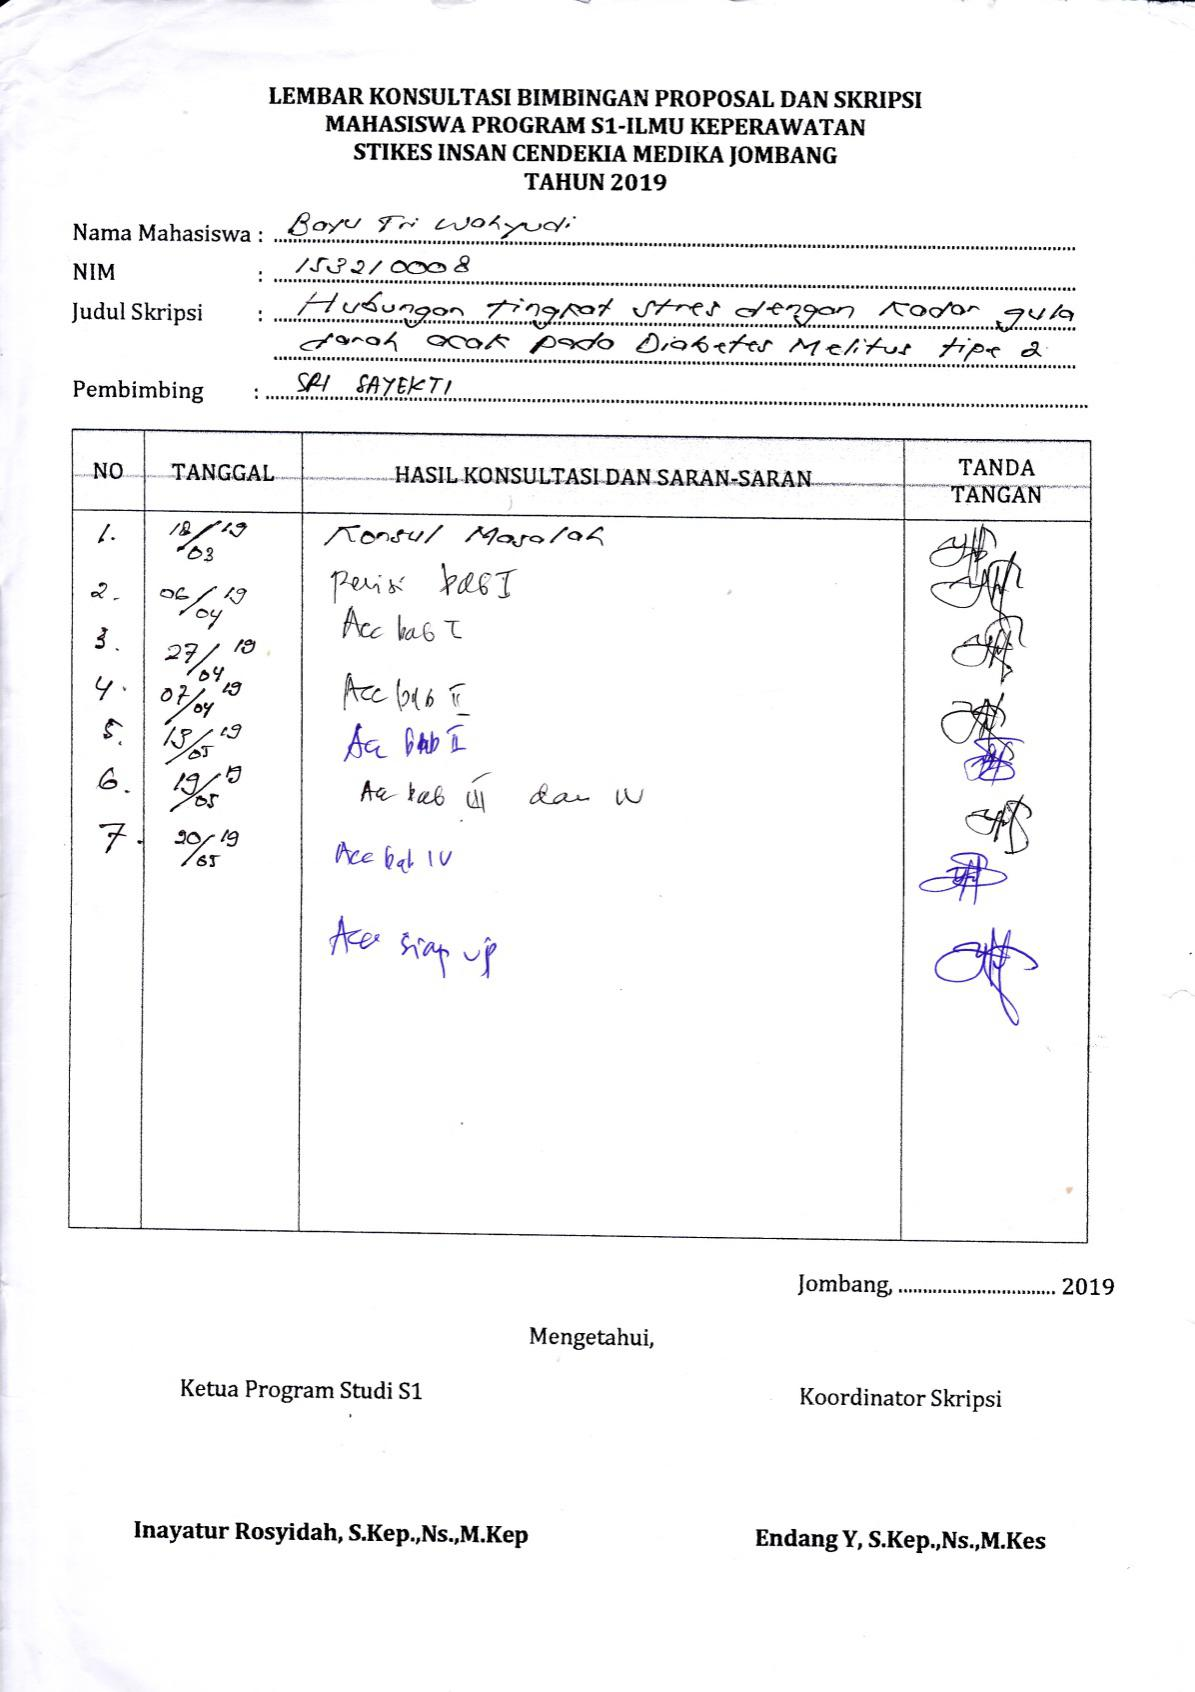 LEMBAR KONSULTASI BIMBINGAN PROPOSAL DAN SKRIPSI
MAHASISWA PROGRAM S1-ILMU KEPERAWATAN
STIKES INSAN CENDEKIA MEDIKA JOMBANG
TAHUN 2019
Nama Mahasiswa : Bayu Tri Wahyudi
NIM : 153210008
Judul Skripsi : Hubungan tingkat stres dengan kadar gula
darah acak pada Diabetes Melitus tipe 2
Pembimbing : SRI SAYEKTI
NO TANGGAL HASIL KONSULTASI DAN SARAN-SARAN TANDA TANGAN
1. 18/03 19 Konsul Masalah
2. 06/04 19 bab I
3. 27/04 19 Acc bab I
4. 07/04 19 Acc bab II
5. 13/05 19 bab II
6. 19/05 19 bab III dan IV
7. 20/05 19 Acc bab IV
Acc siap up
Jombang, ................................ 2019
Mengetahui,
Ketua Program Studi S1 Koordinator Skripsi
Inayatur Rosyidah, S.Kep.,Ns.,M.Kep Endang Y, S.Kep.,Ns.,M.Kes